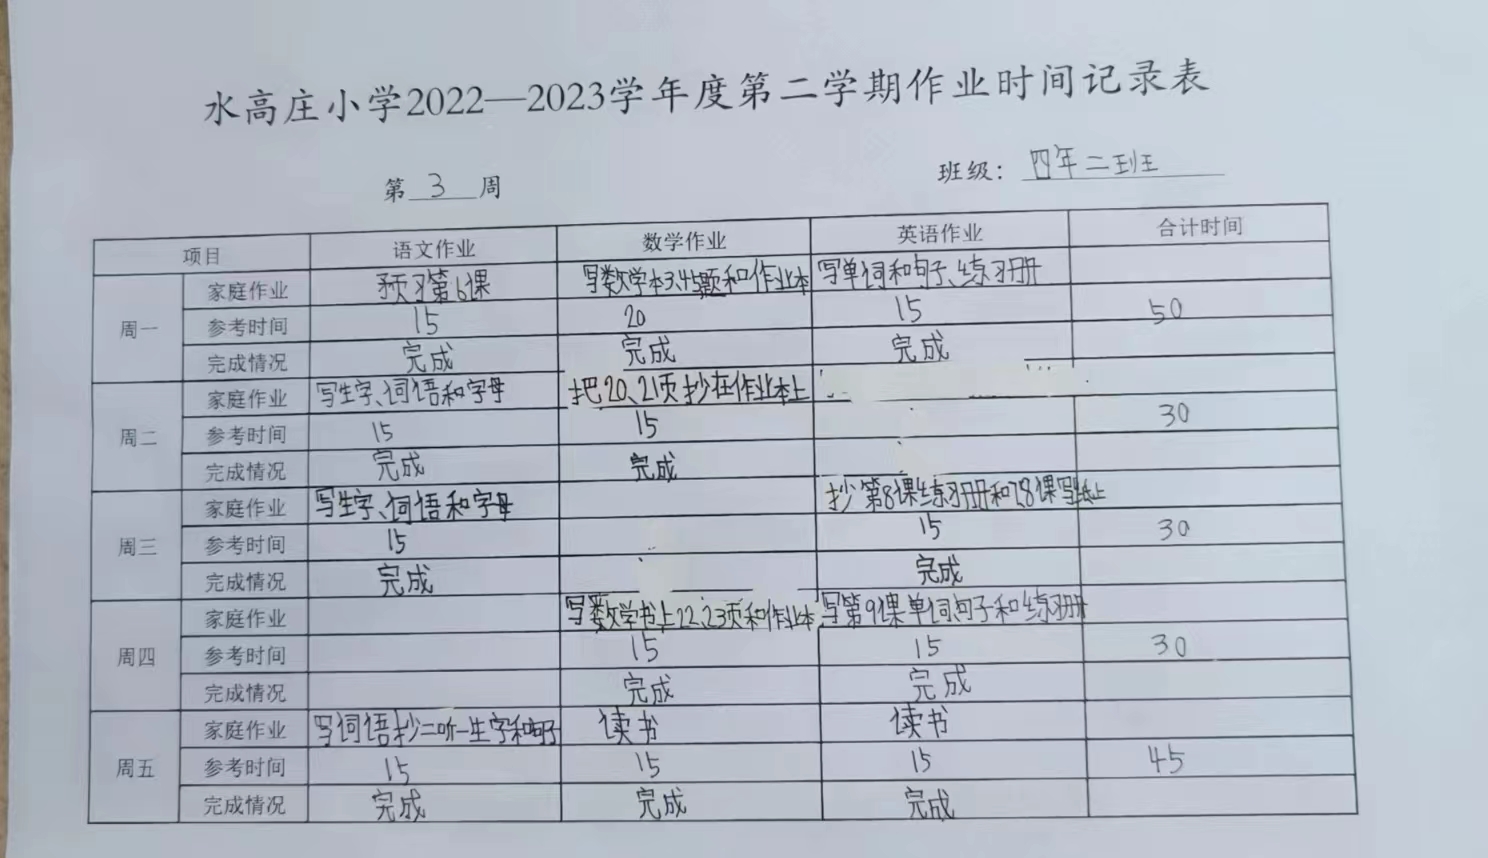 水高庄小学2022—2023学年度第二学期作业时间记录表
第 3 周 班级：四年二班
项目 语文作业 数学作业 英语作业 合计时间
周一
家庭作业 预习第6课 写数学本3.4.5题和作业本 写单词和句子、练习册
参考时间 15 20 15 50
完成情况 完成 完成 完成
周二
家庭作业 写生字、词语和字母 把20、21页抄在作业本上
参考时间 15 15 30
完成情况 完成 完成
周三
家庭作业 写生字、词语和字母 抄第8课练习册和7.8课写纸上
参考时间 15 15 30
完成情况 完成 完成
周四
家庭作业 写数学书上22、23页和作业本 写第9课单词句子和练习册
参考时间 15 15 30
完成情况 完成 完成
周五
家庭作业 写词语抄二听一生字和句子 读书 读书
参考时间 15 15 15 45
完成情况 完成 完成 完成